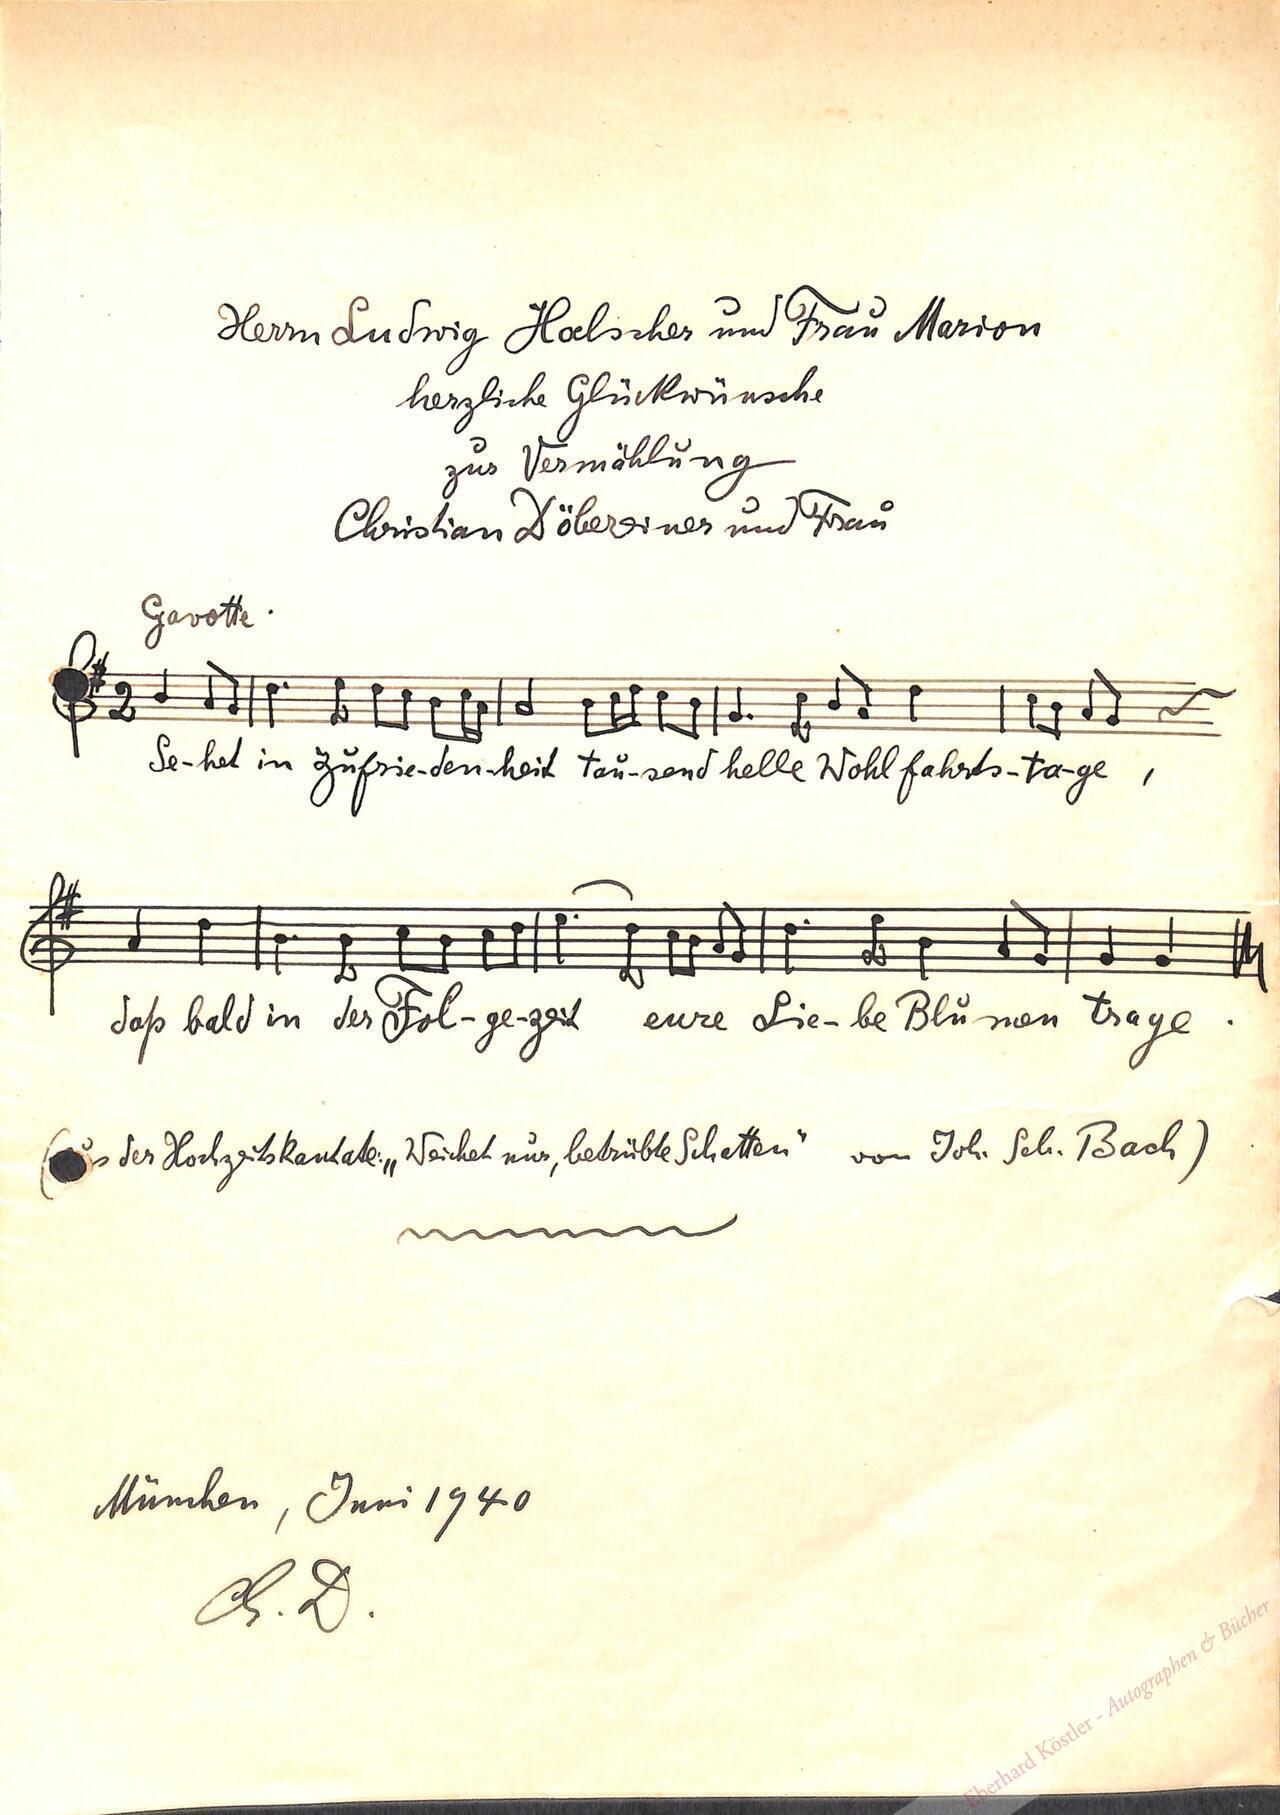 Herrn Ludwig Hoelscher und Frau Marion
herzliche Glückwünsche
zur Vermählung
Christian Döbereiner und Frau
Gavotte.
2
Se-het in Zufrie-den-heit tau-send helle Wohlfahrts-ta-ge,
daß bald in der Fol-ge-zeit eure Lie-be Blumen trage.
(aus der Hochzeitskantate: „Weichet nur, betrübte Schatten" von Joh. Seb. Bach)
München, Juni 1940
Ch. D.
Eberhard Köstler - Autographen & Bücher